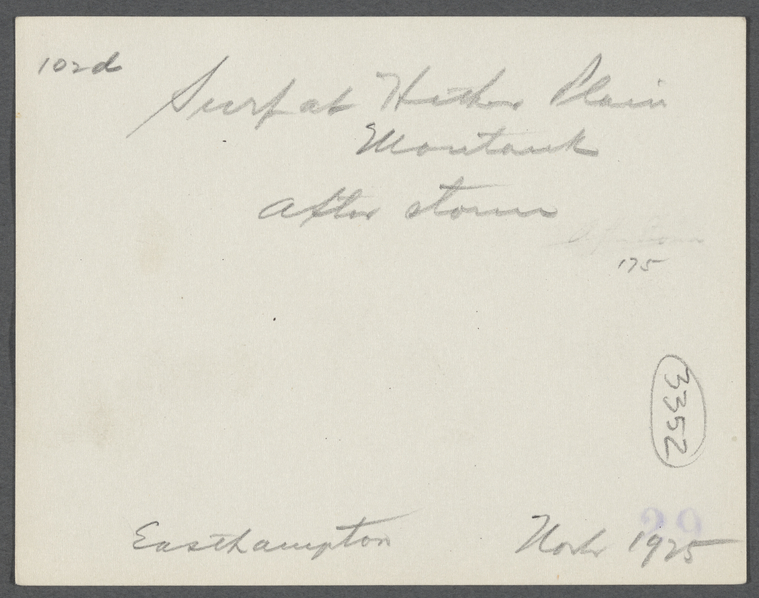 102d
Surf at Hither Plain
Montauk
after storm
175
3352
29
Easthampton Novbr 1925